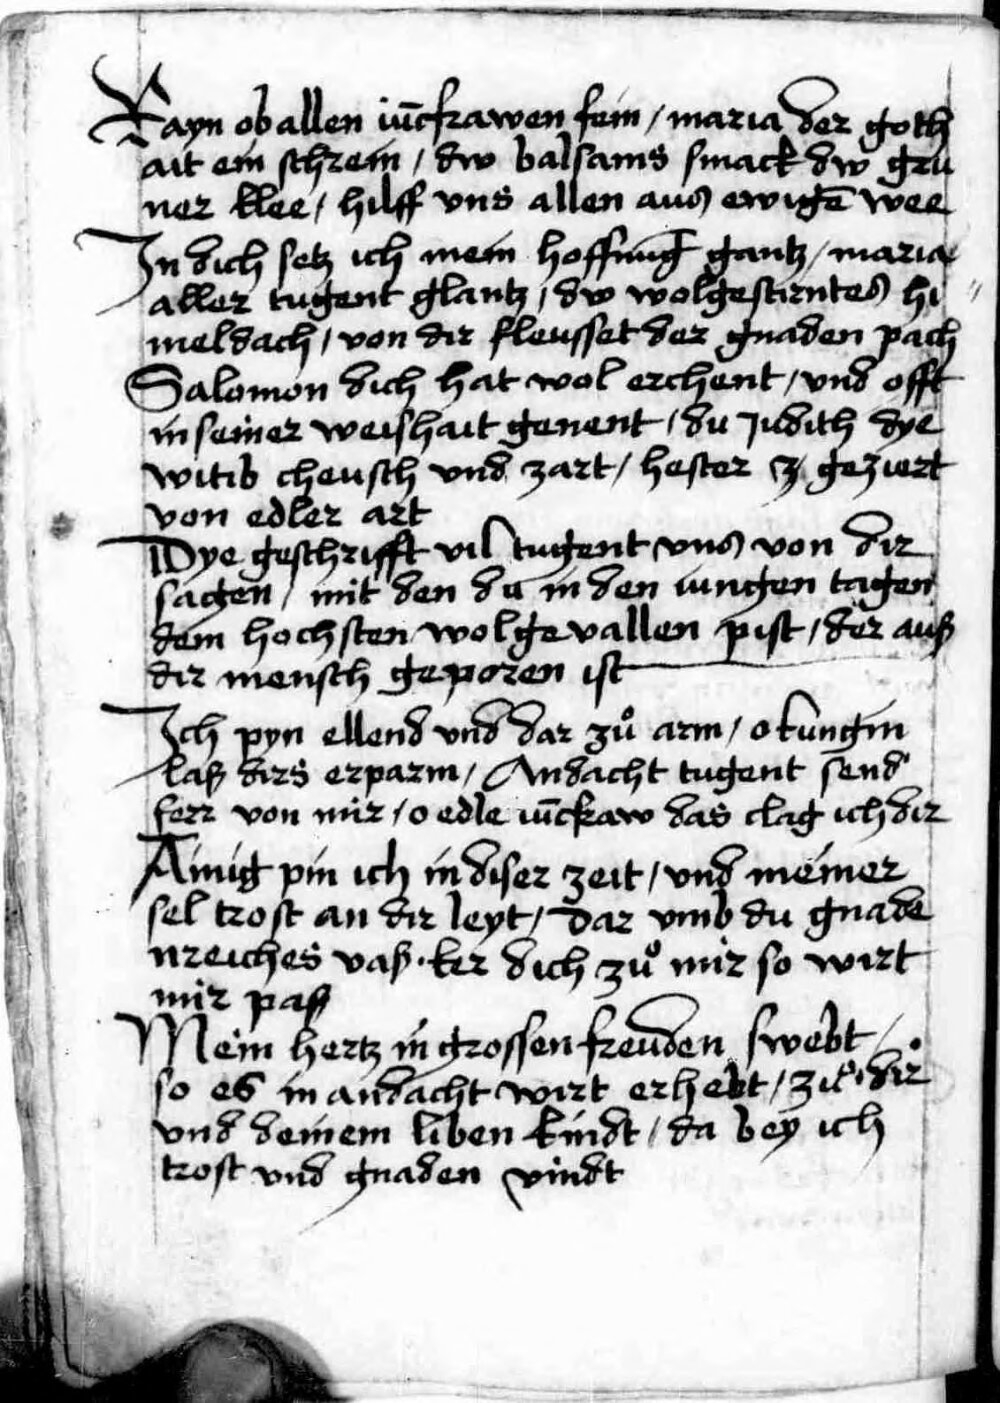 Rayn ob allen iu̅ckfrawen fein / maria der goth
ait ein schrein / dw balsams smack dw gru
ner klee / hilff vns allen aus ewige̅ wee
In dich setz ich mein hoffnu̅g gantz / maria
aller tugent glantz / dw wolgestirntes hi
meldach / von dir fleusset der gnaden pach
Salomon dich hat wol erchent / vnd offt
in seiner weishait genent / du Judith dye
witib cheusch vnd zart / hester geziert
von edler art
Dye geschrifft vil tugent vns von dir
sagen / mit den du in den iungen tagen
dem hochsten wolgevallen pist / der auß
dir mensch geporen ist
Ich pyn ellend vnd dar zů arm / o kungin
laß dirs erparm / Andacht tugent send
ferr von mir / o edle iu̅ckfraw das clag ich dir
Ainig pin ich in diser zeit / vnd meiner
sel trost an dir leyt / dar vmb du gnade
nreiches vaß · ker dich zů mir so wirt
mir paß
Mein hertz in grossen freuden swebt /
so es in andacht wirt erhebt / zů dir
vnd deinem liben kindt / da bey ich
trost vnd gnaden vindt